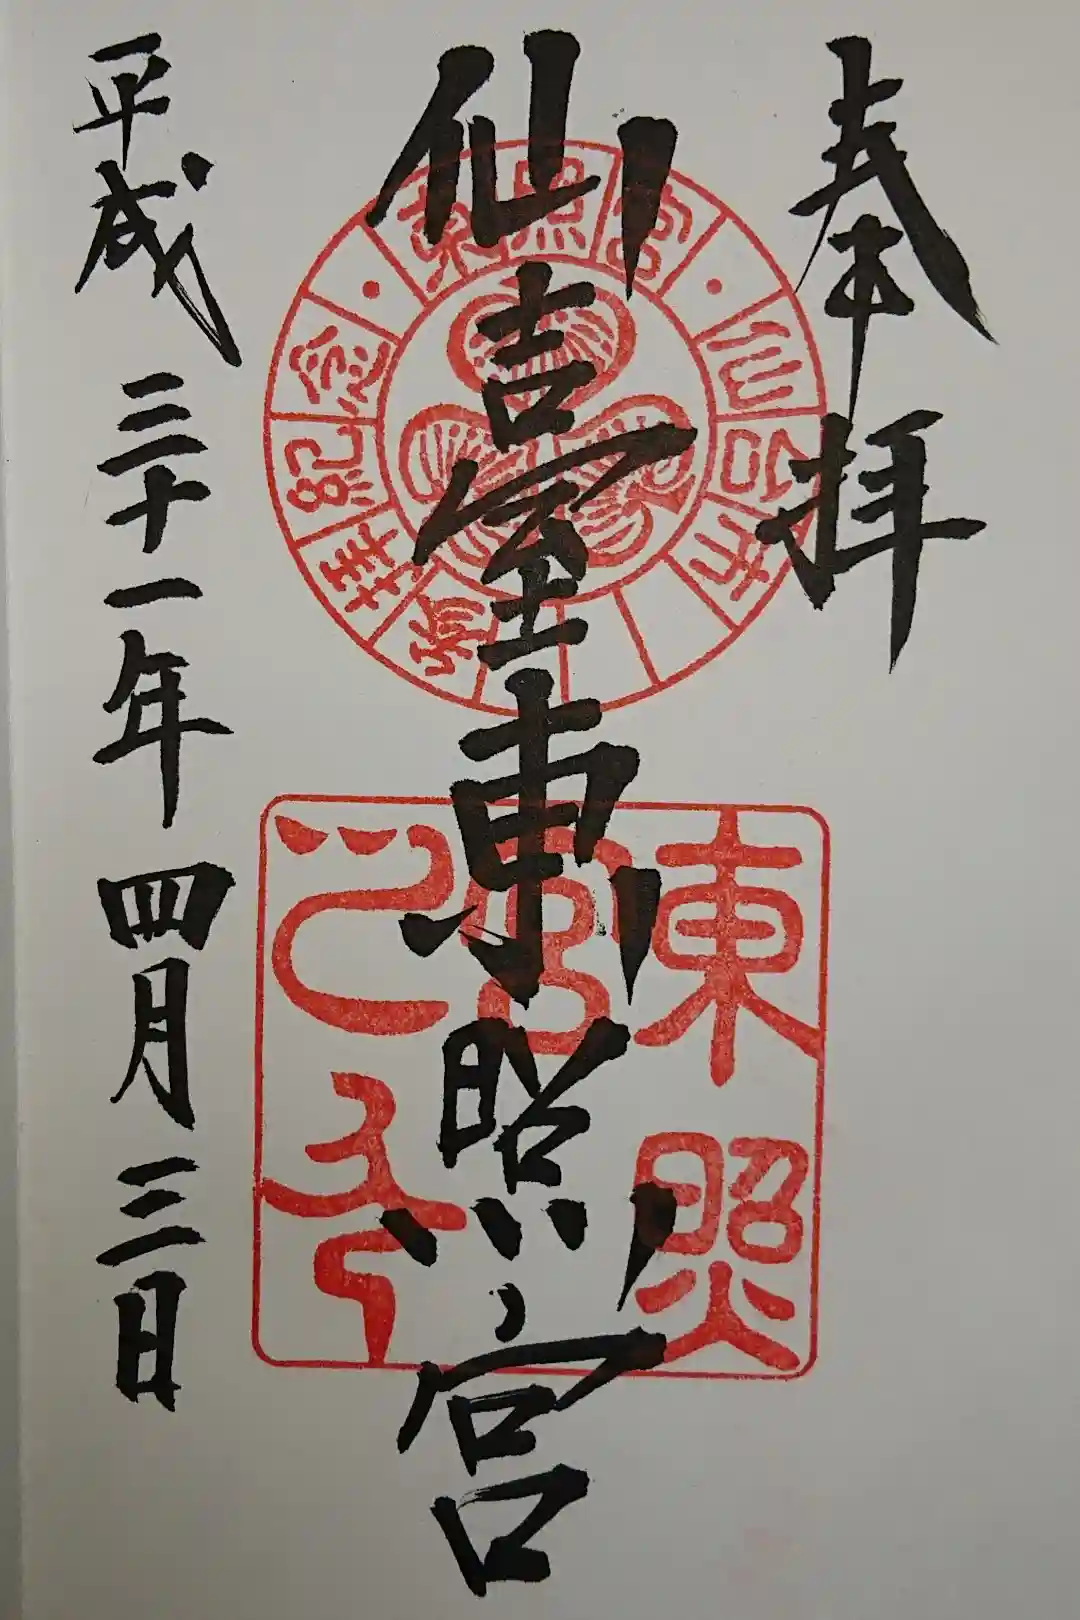 奉拝
仙臺東照宮
平成三十一年四月三日
東照宮
仙台市
参拝紀念
東照宮